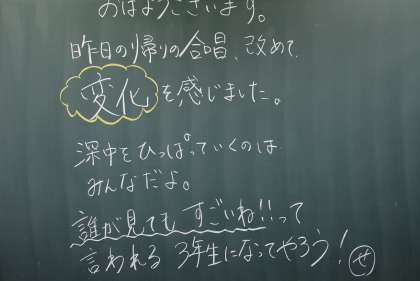 おはようございます。
昨日の帰りの合唱、改めて
変化を感じました。
深中をひっぱっていくのは
みんなだよ。
誰が見ても すごいね!!って
言われる 3年生になってやろう! せ